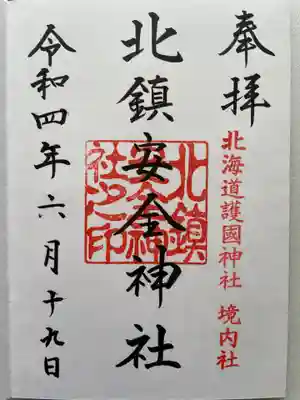 奉拝
北海道護國神社 境内社
北鎮安全神社
北鎮安全神社之印
令和四年六月十九日